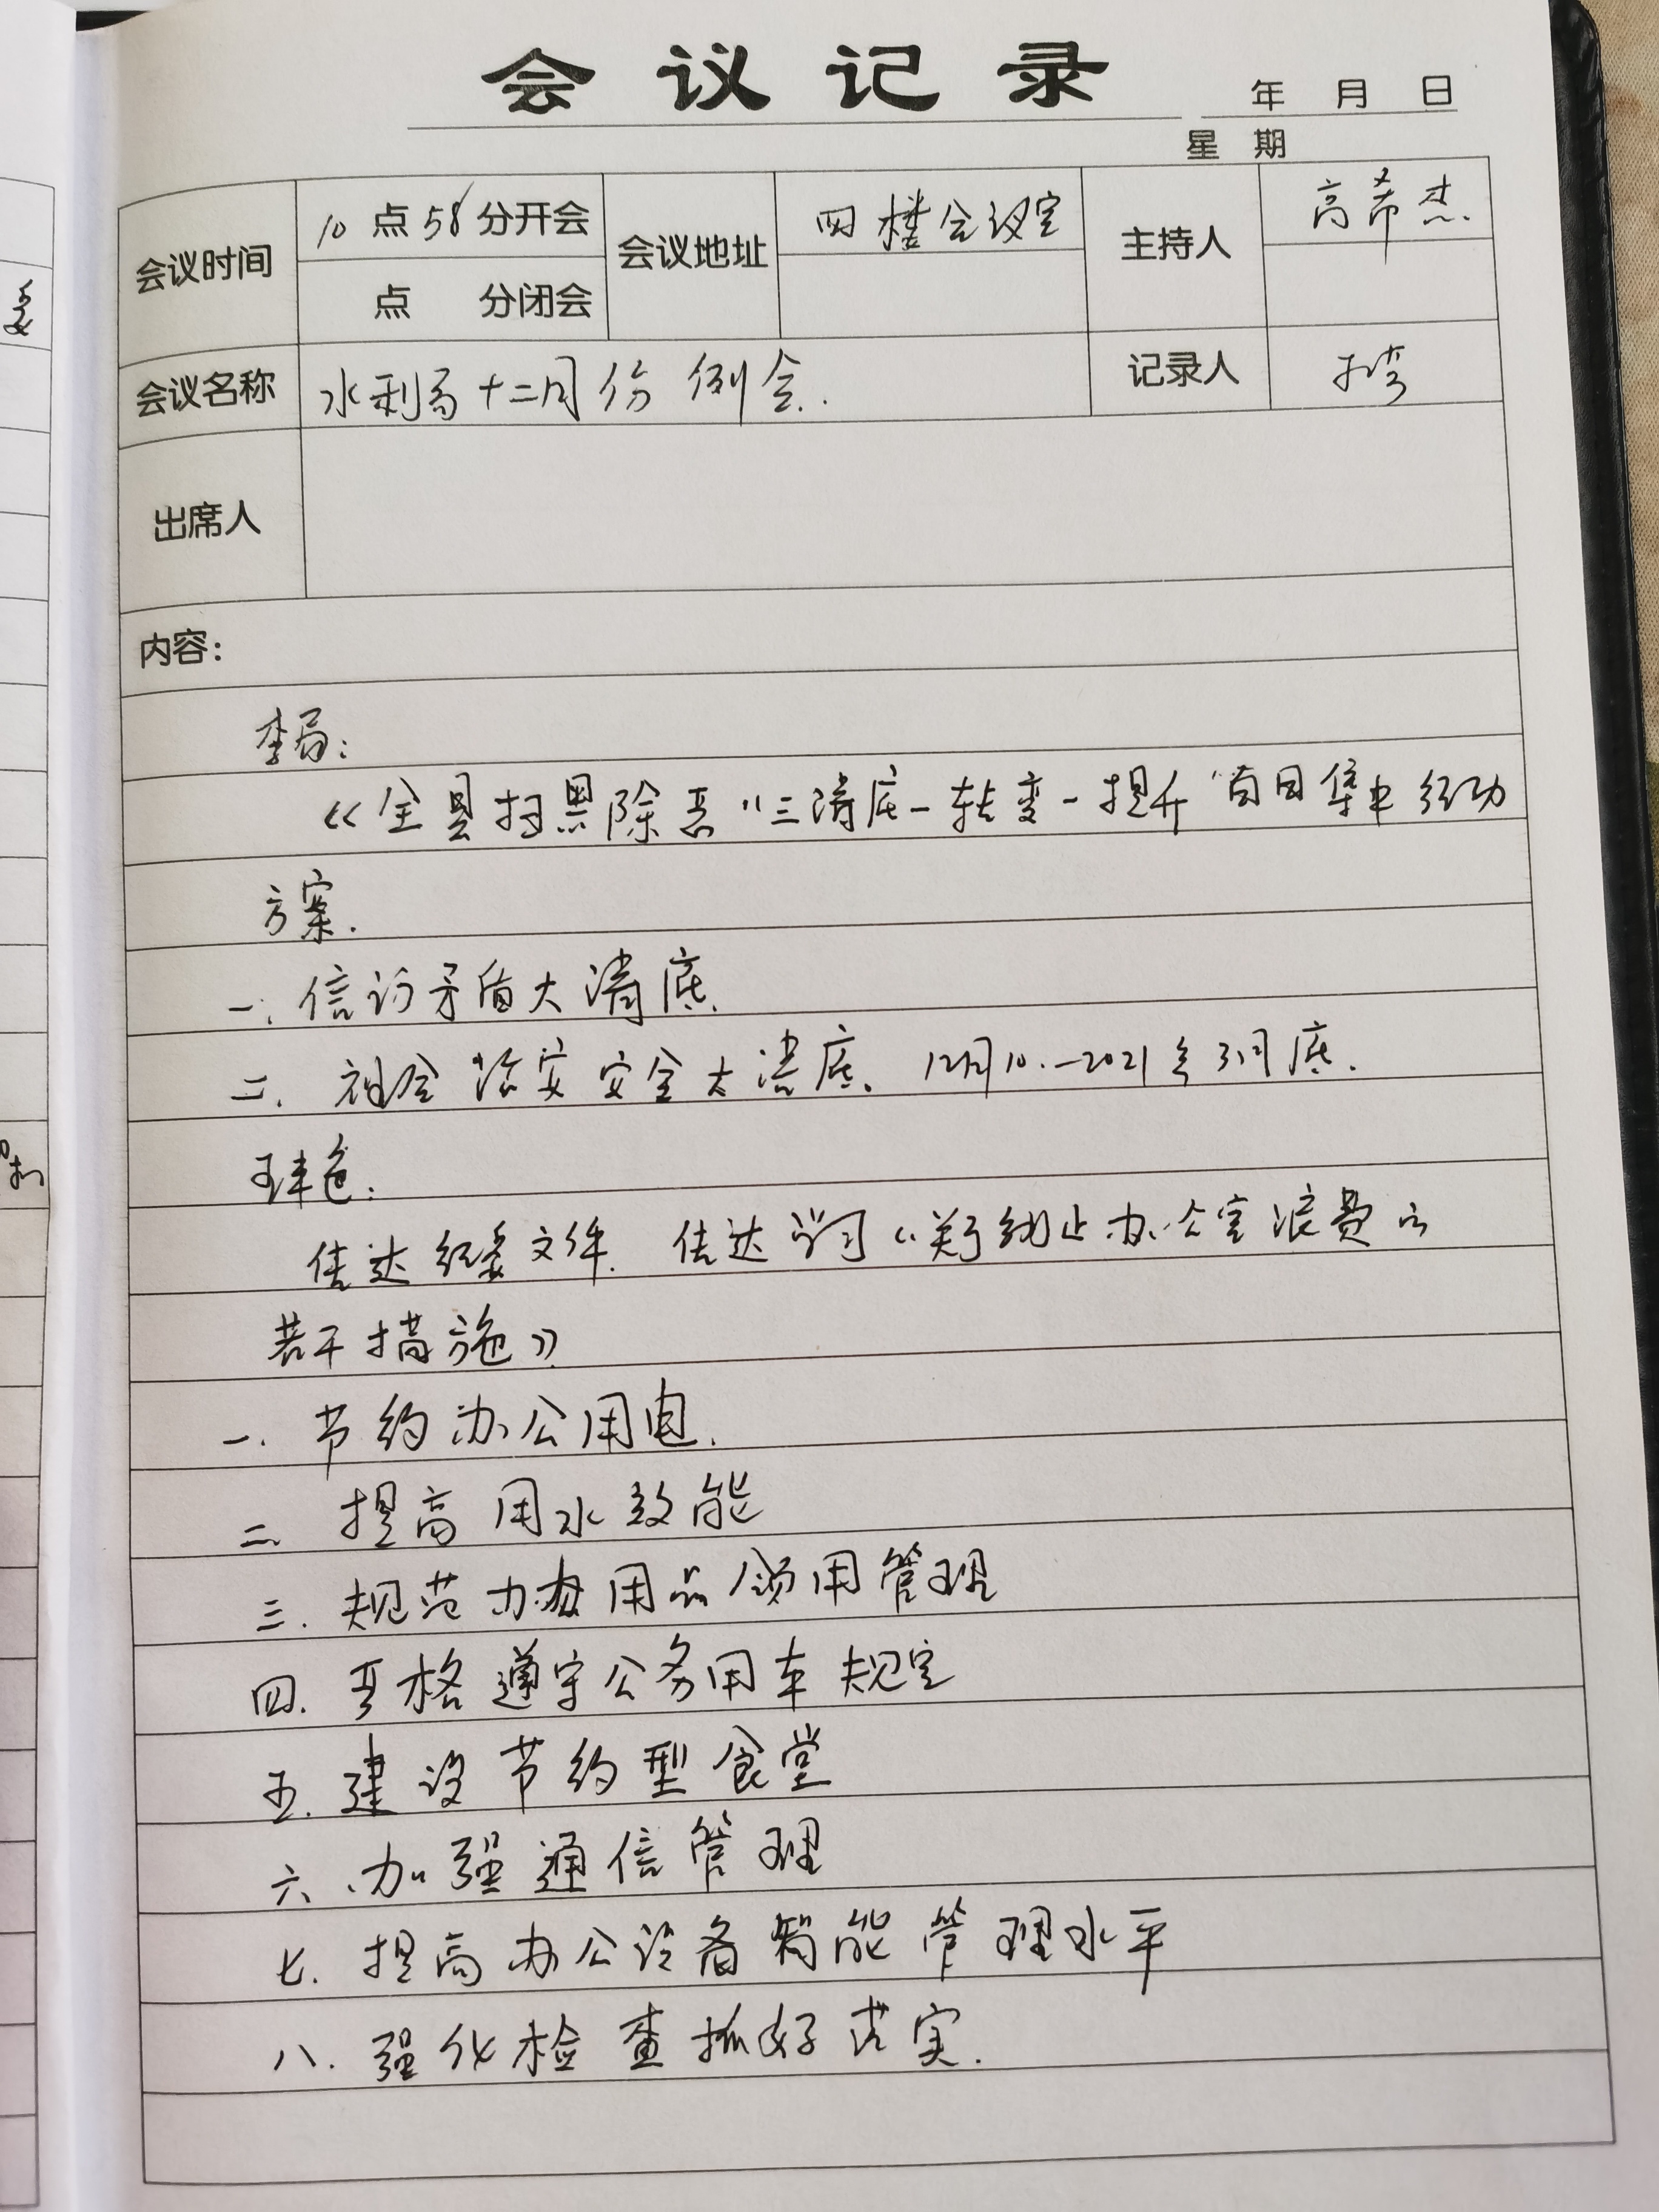 会议记录
年 月 日
星期
会议时间 10点58分开会 会议地址 四楼会议室 主持人 高希杰.
点 分闭会
会议名称 水利局十二月份例会. 记录人
出席人
内容：
李局：
《全县扫黑除恶"三清底一转变一提升"百日集中行动
方案.
一.信访矛盾大清底.
二.社会治安安全大清底. 12月10.—2021年3月底.
传达纪委文件.传达学习《关于制止办公室浪费的
若干措施》
一.节约办公用电.
二.提高用水效能
三.规范办公用品领用管理
四.严格遵守公务用车规定
五.建设节约型食堂
六、加强通信管理
七.提高办公设备智能管理水平
八.强化检查抓好落实.